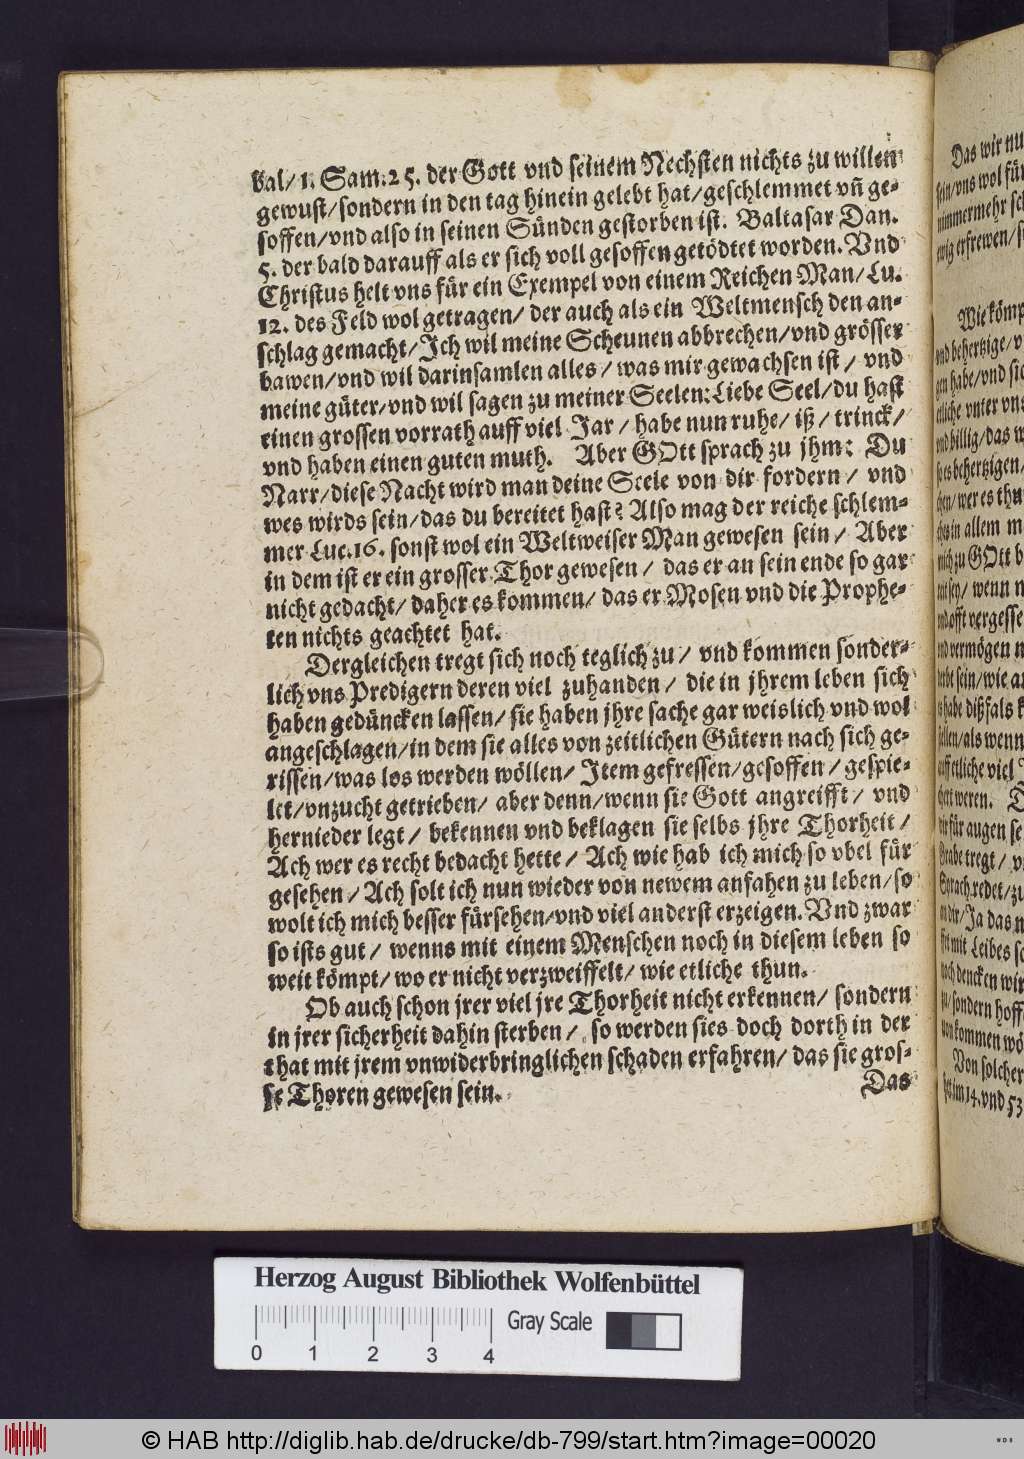 bal/ 1. Sam. 25. der Gott vnd seinem Nechsten nichts zu willen
gewust/ sondern in den tag hinein gelebt hat/ geschlemmet vñ ge-
soffen/ vnd also in seinen Sünden gestorben ist. Baltasar Dan.
5. der bald darauff als er sich voll gesoffen getödtet worden. Vnd
Christus helt vns für ein Exempel von einem Reichen Man/ Lu.
12. des Feld wol getragen/ der auch als ein Weltmensch den an-
schlag gemacht/ Ich wil meine Scheunen abbrechen/ vnd grösser
bawen/ vnd wil darin samlen alles/ was mir gewachsen ist/ vnd
meine güter/ vnd wil sagen zu meiner Seelen: Liebe Seel/ du hast
einen grossen vorrath auff viel Jar/ habe nun ruhe/ iß/ trinck/
vnd haben einen guten muth. Aber GOtt sprach zu jhm: Du
Narr/ diese Nacht wird man deine Seele von dir fordern/ vnd
wes wirds sein/ das du bereitet hast? Also mag der reiche schlem-
mer Luc. 16. sonst wol ein Weltweiser Man gewesen sein/ Aber
in dem ist er ein grosser Thor gewesen/ das er an sein ende so gar
nicht gedacht/ daher es kommen/ das er Mosen vnd die Prophe-
ten nichts geachtet hat.
Dergleichen tregt sich noch teglich zu/ vnd kommen sonder-
lich vns Predigern deren viel zuhanden/ die in jhrem leben sich
haben gedüncken lassen/ sie haben jhre sache gar weislich vnd wol
angeschlagen/ in dem sie alles von zeitlichen Gütern nach sich ge-
rissen/ was los werden wöllen/ Item gefressen/ gesoffen/ gespie-
let/ vnzucht getrieben/ aber denn/ wenn sie Gott angreifft/ vnd
hernieder legt/ bekennen vnd beklagen sie selbs jhre Thorheit/
Ach wer es recht bedacht hette/ Ach wie hab ich mich so vbel für
gesehen/ Ach solt ich nun wieder von newem anfahen zu leben/ so
wolt ich mich besser fürsehen/ vnd viel anderst erzeigen. Vnd zwar
so ists gut/ wenns mit einem Menschen noch in diesem leben so
weit kömpt/ wo er nicht verzweiffelt/ wie etliche thun.
Ob auch schon jrer viel jre Thorheit nicht erkennen/ sondern
in jrer sicherheit dahin sterben/ so werden sies doch dorth in der
that mit jrem vnwiderbringlichen schaden erfahren/ das sie gros-
se Thoren gewesen sein.
Das
Das wir nu
sein/ vns wol für
nimmermehr sch
ewig erfrewen/ s
Wie kömp
vnd behertzige/ v
gen habe/ vnd sic
etliche vnter vns
vnd billig/ das w
so es behertzigen/
chen/ wer es thu
ches in allem m
mich zu GOtt b
müsen/ wenn n
vnd offt vergesse
vnd vermögen n
derbt sein/ wie a
ts habe dißfals k
stellen/ als wenn
auff etliche viel
chert weren. D
wir für augen se
Grabe tregt/ v
Sprach redet/ zu
an dir/ Ja das n
fft mit Leibes sc
noch dencken wir
n/ sondern hoff
von kommen wö
Von solcher
set im 14. vnd 53
Herzog August Bibliothek Wolfenbüttel
Gray Scale
0 1 2 3 4
© HAB http://diglib.hab.de/drucke/db-799/start.htm?image=00020